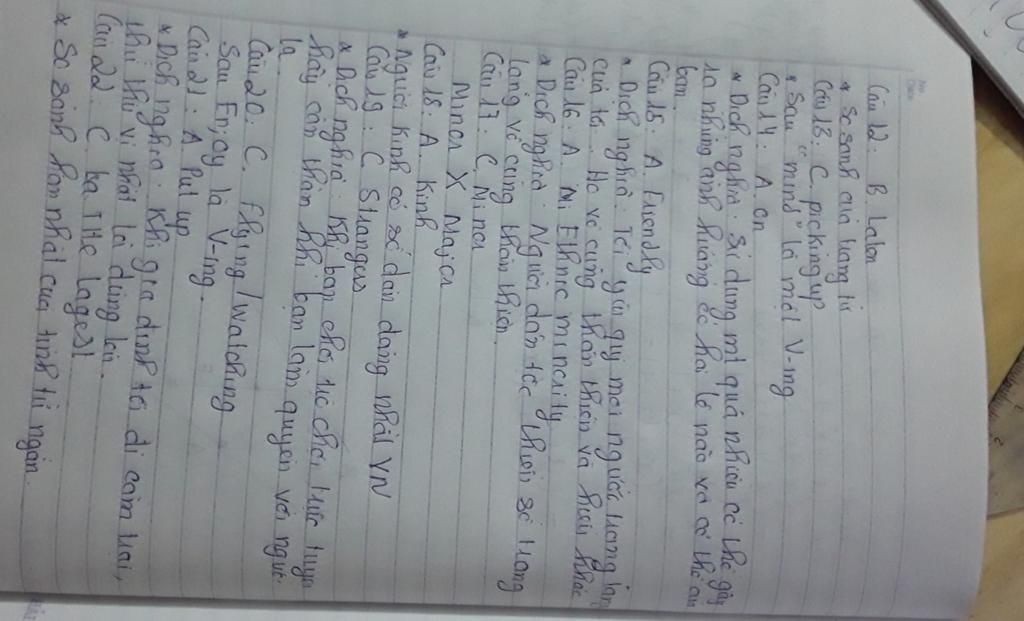 Câu 12. B. Later
* So sánh của trạng từ
Câu 13. C. picking up
* Sau "mind" là một V-ing
Câu 14. A on
* Dịch nghĩa. Sử dụng mt quá nhiều có thể gây
ra những ảnh hưởng ốc hại lê não và có thể
bạn.
Câu 15. A. Friendly
* Dịch nghĩa. Tôi yêu quý mọi người trong làng
của tôi. Họ vô cùng thân thiện và hiếu khác
Câu 16. A. Mi Ethnic minority
* Dịch nghĩa. Người dân tộc thiểu số trong
làng vô cùng thân thiện.
Câu 17. C Minor
Minor X Major
Câu 18. A. Kinh
* Người Kinh có số dân đông nhất VN
Câu 19. C Strangers
* Dịch nghĩa. Khi bạn chơi trò chơi trực tuyến
hãy cẩn thận khi bạn làm quyen với người
lạ
Câu 20. C. flying / watching
Sau Enjoy là V-ing.
Câu 21. A Put up
* Dịch nghĩa. Khi gia đình tôi đi cắm trại,
thứ thú vị nhất là dựng lều.
Câu 22. C. ha The lagest
* So sánh hơn nhất của tính từ ngắn.